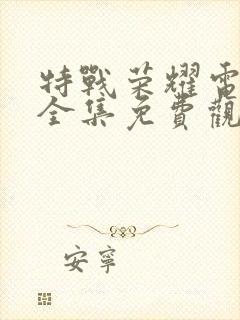 特戰荣耀電
全集免費觀
安寧